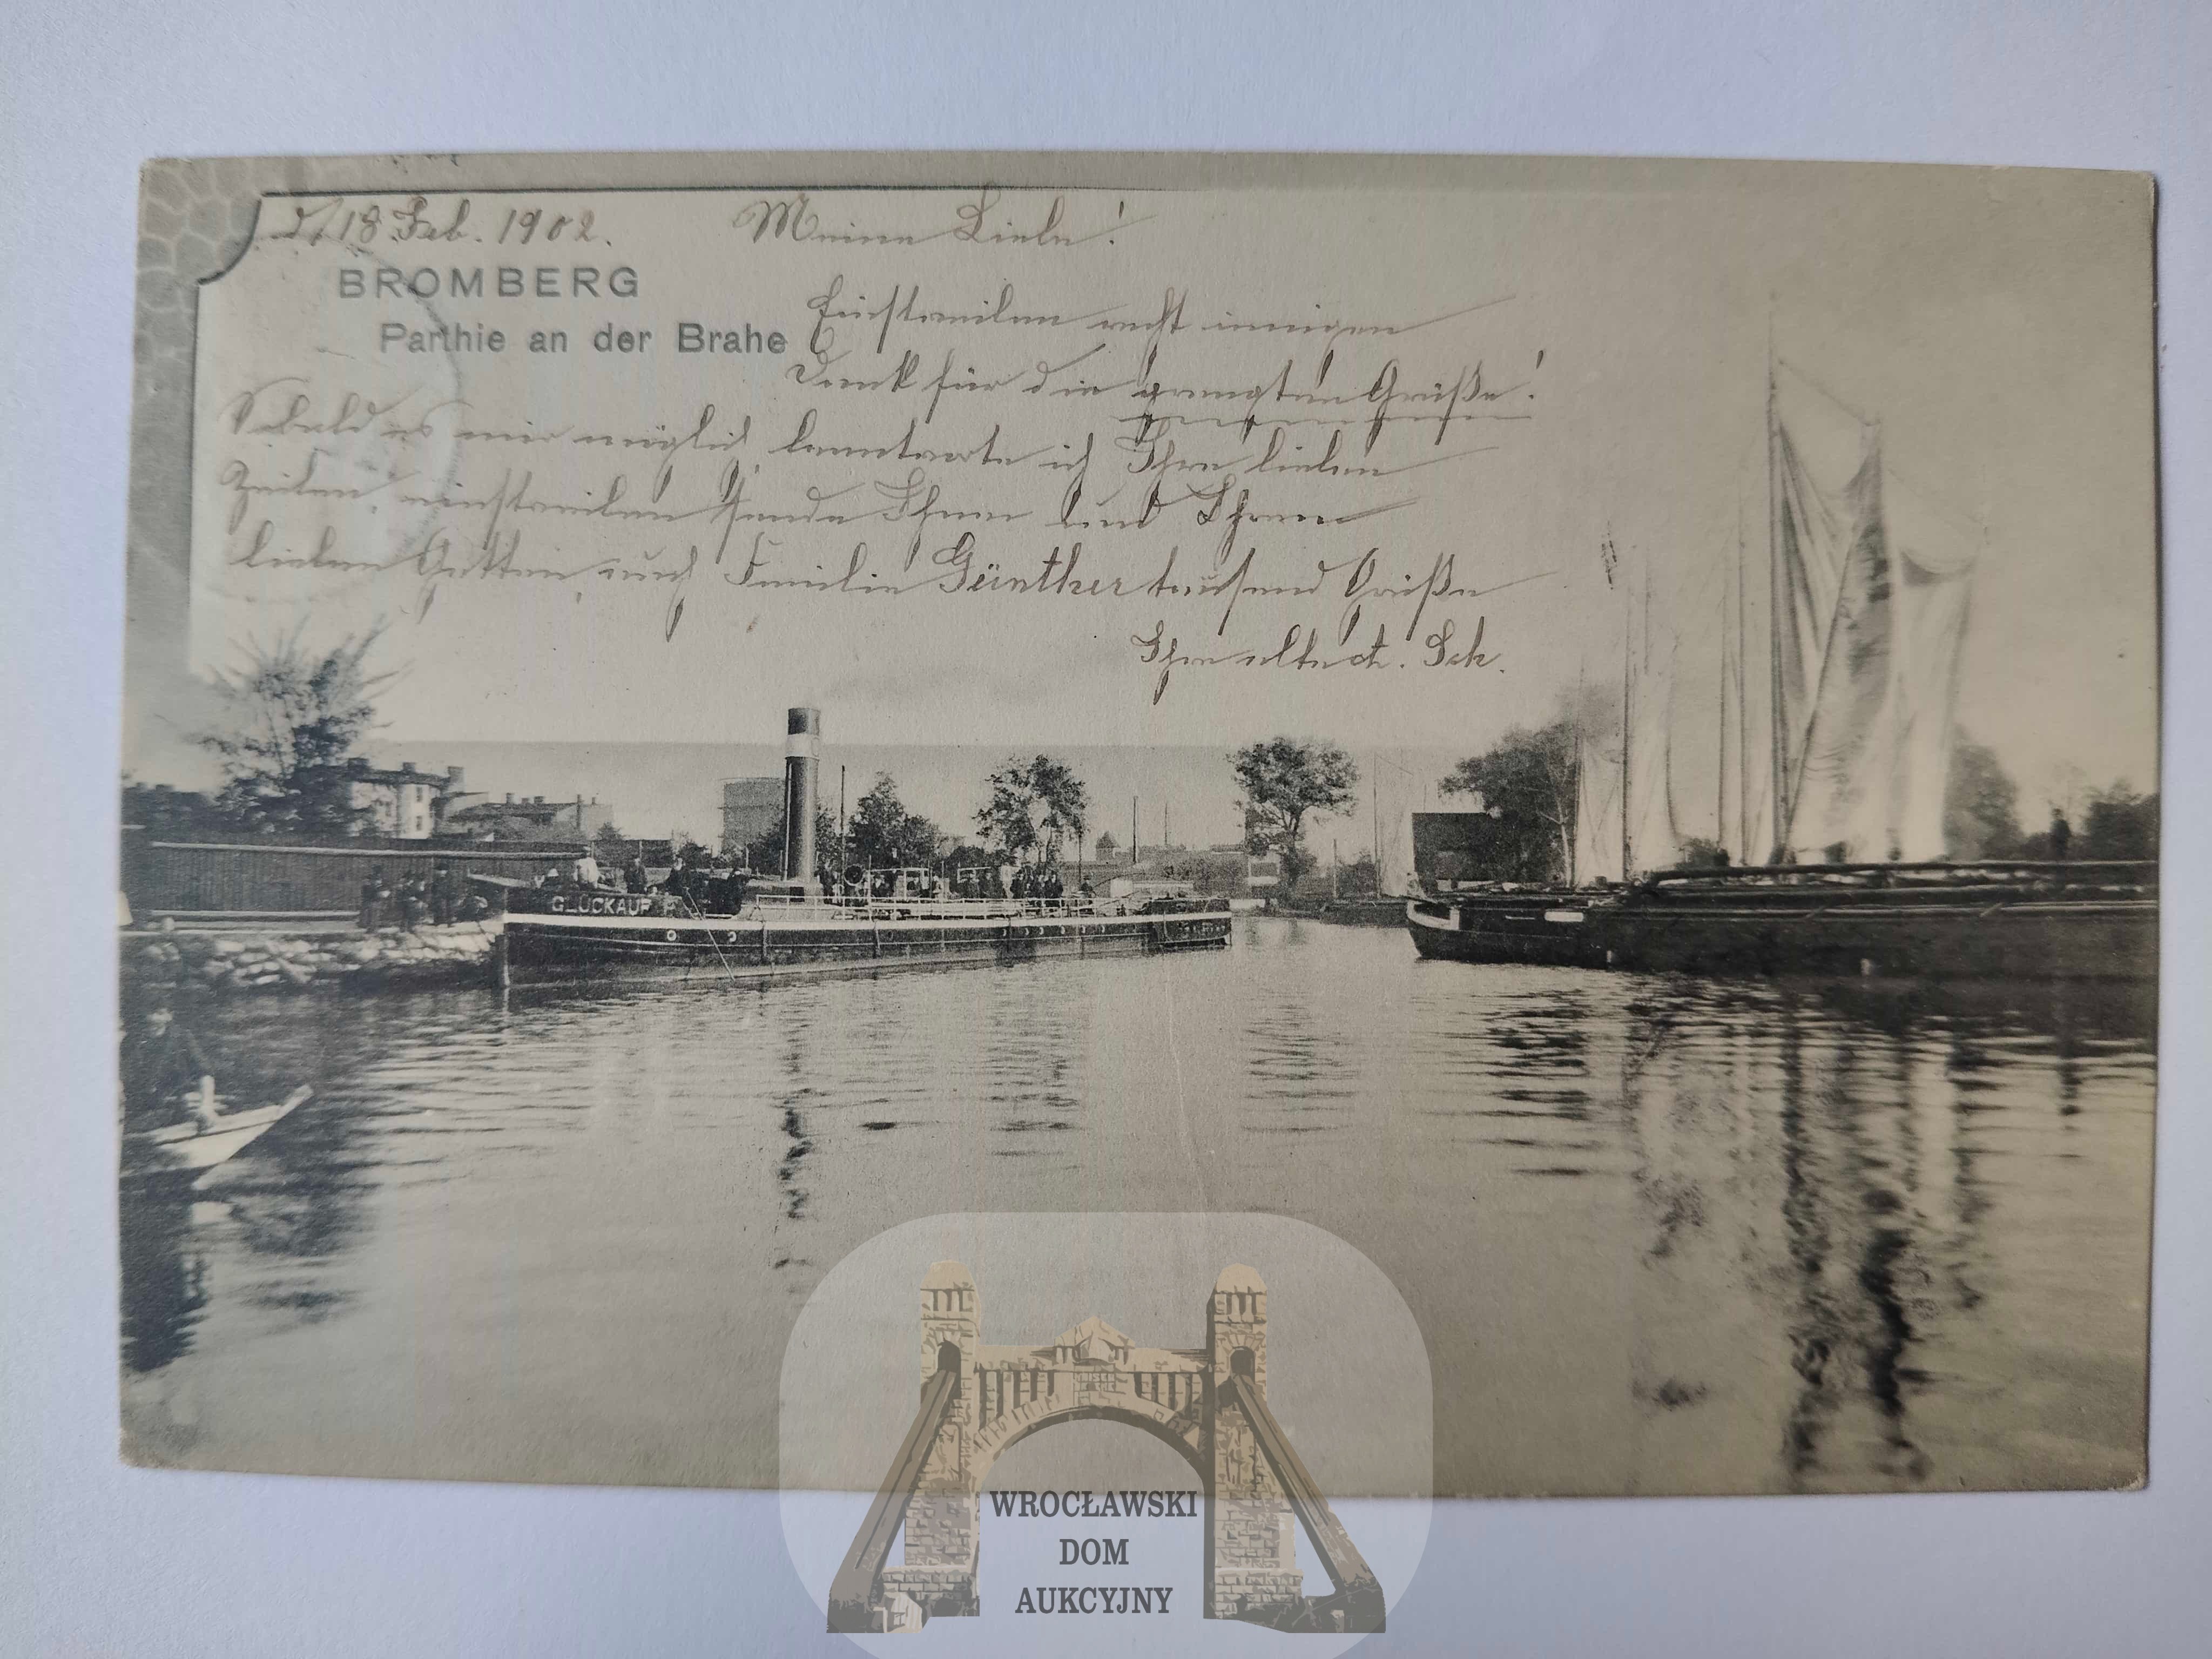 d/18 Feb. 1902. Meine Liebe!
BROMBERG
Parthie an der Brahe
Einstweilen recht innigen
Dank für die Grüße!
Sobald es mir möglich beantworte ich Ihre lieben
Zeilen, einstweilen sende Ihnen und Ihrem
lieben Gatten auch Familie Günther tausend Grüße
Ihre alte Sch.
GLÜCKAUF
WROCŁAWSKI
DOM
AUKCYJNY